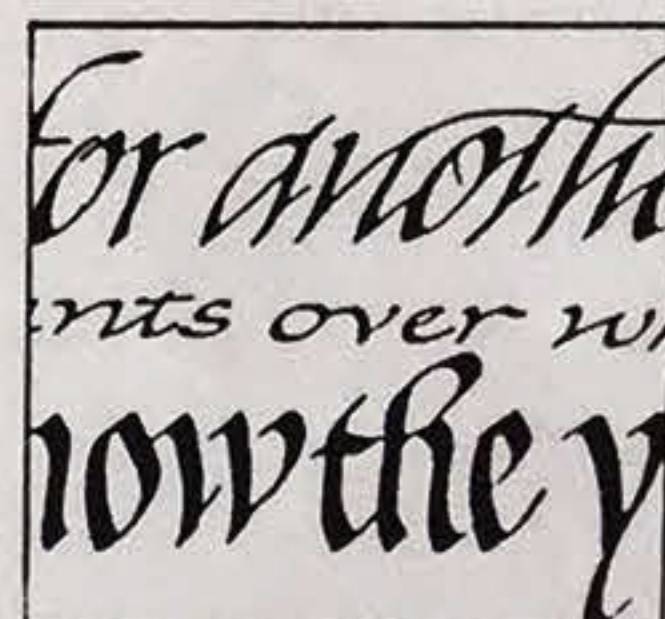 for anothe
ants over wh
now the y